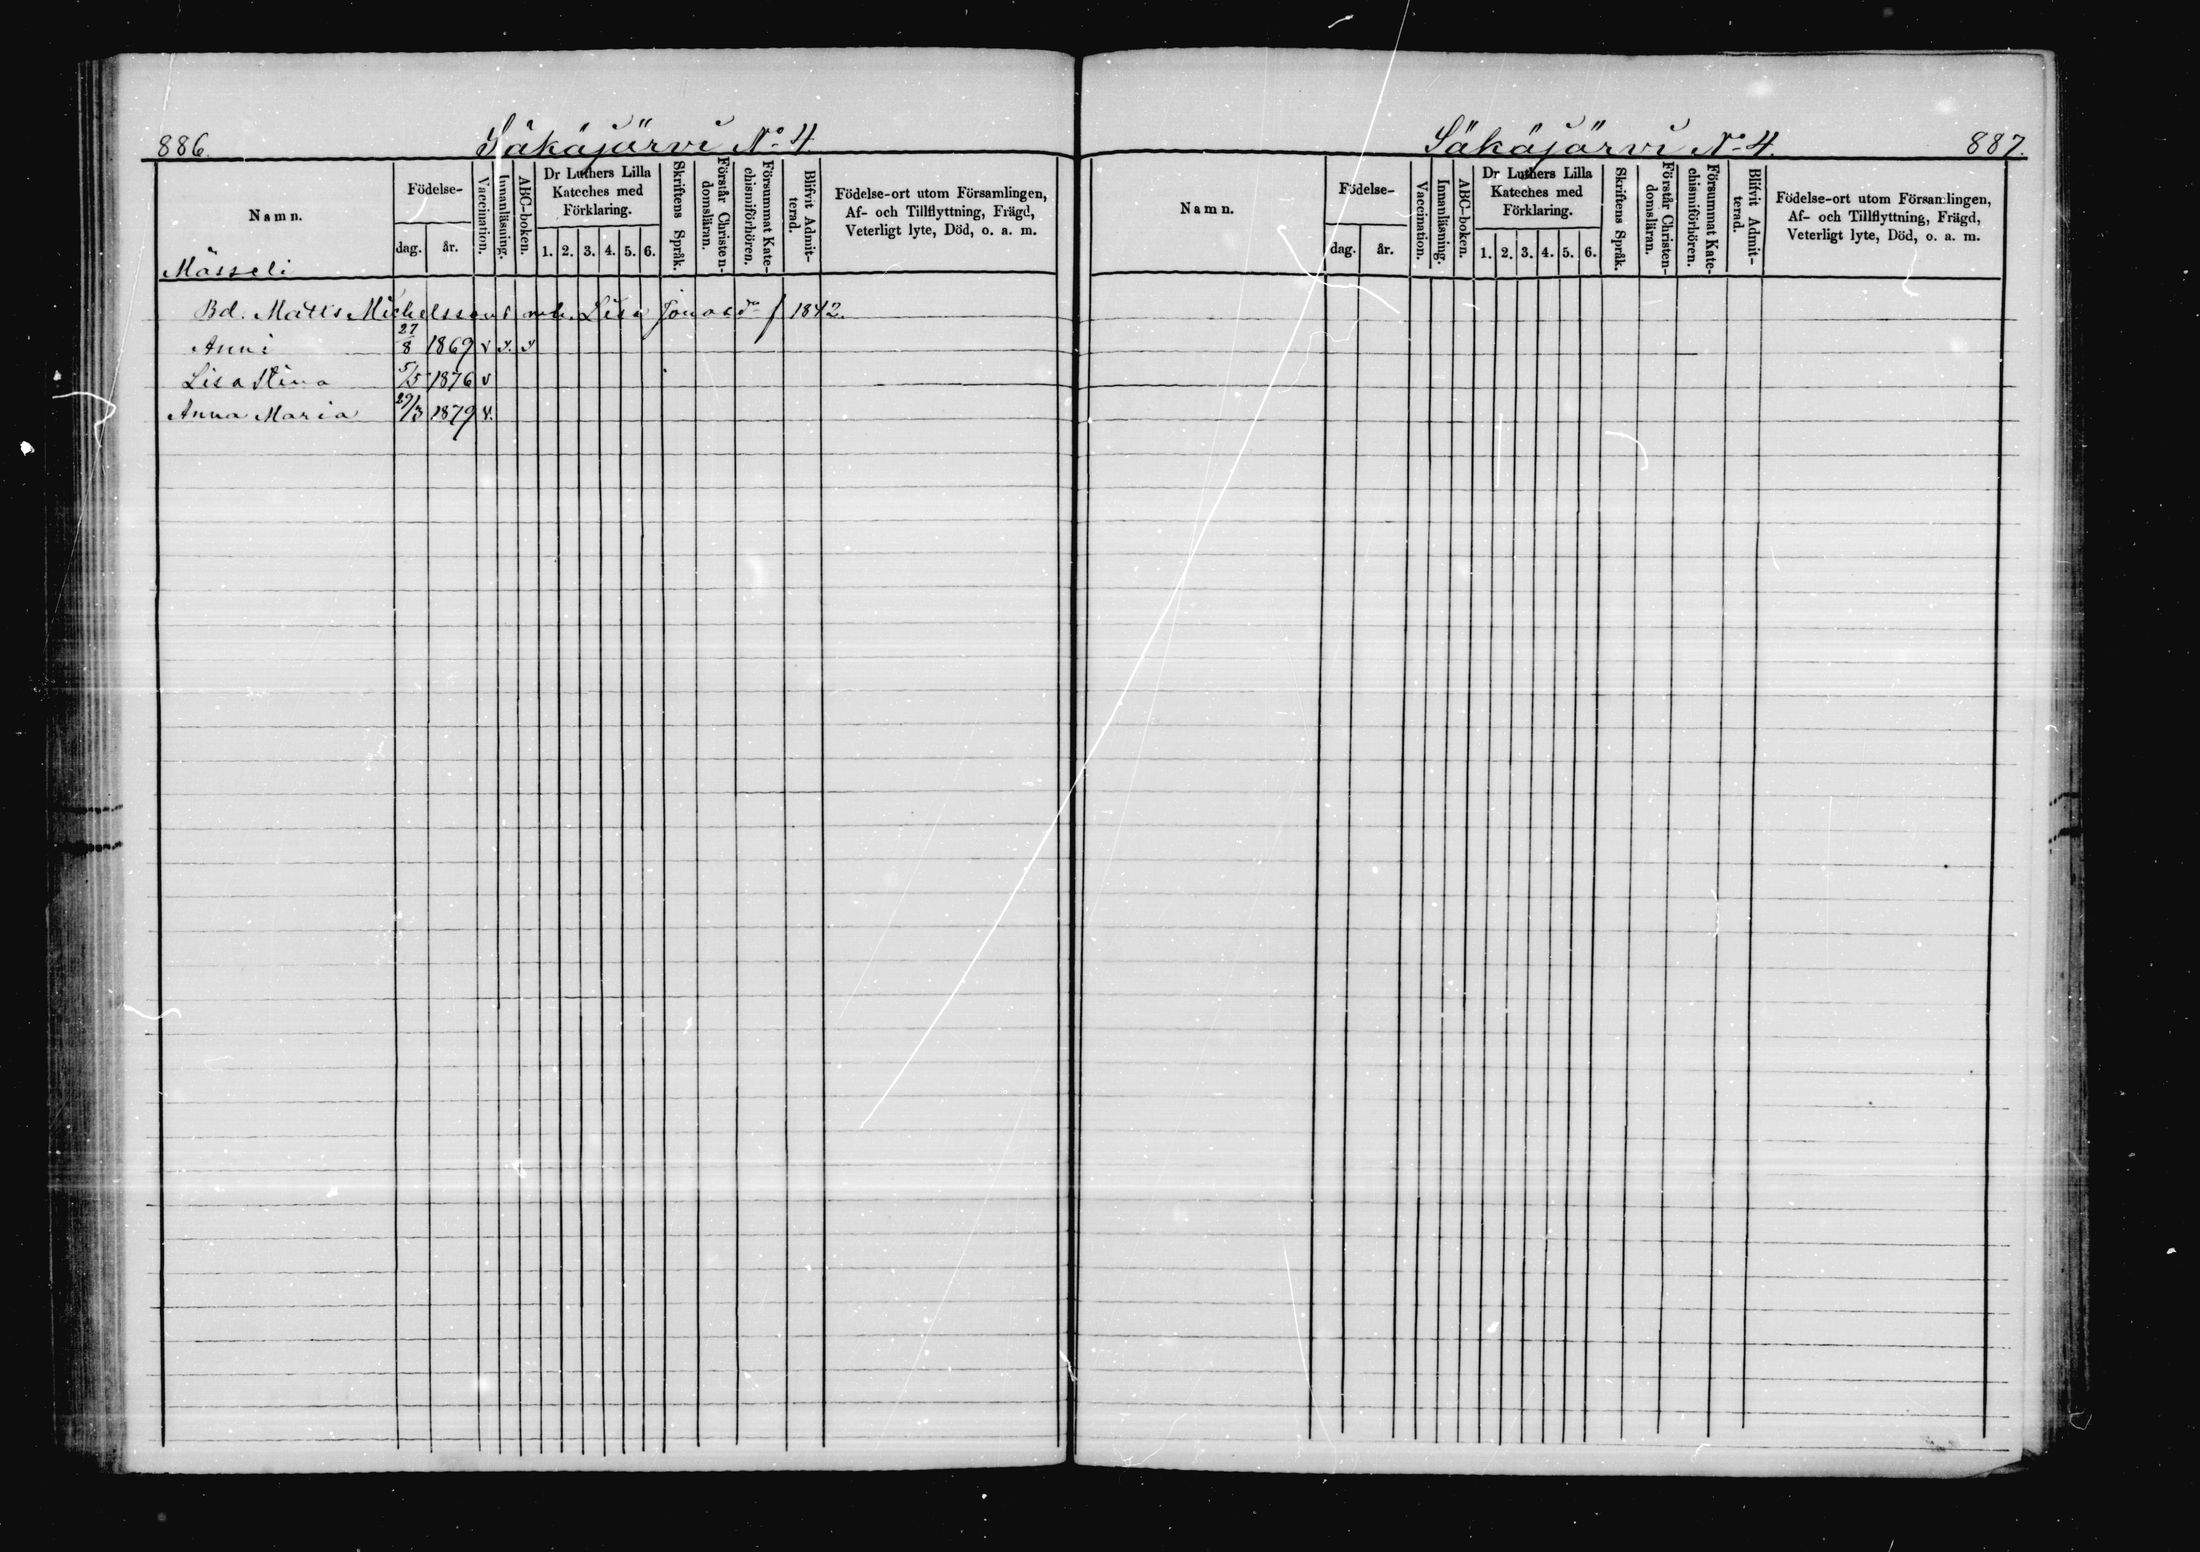 886.
Säkäjärvi No 4.
Namn.
Födelse-
dag.
år.
Vaccination.
Innanläsning.
ABC-boken.
Dr Luthers Lilla
Kateches med
Förklaring.
1. 2. 3. 4. 5. 6.
Skriftens Språk.
Förstår Christen-
domsläran.
Försummat Kate-
chismiförhören.
Blifvit Admit-
terad.
Födelse-ort utom Församlingen,
Af- och Tillflyttning, Frägd,
Veterligt lyte, Död, o. a. m.
Mässeli
Bd. Matts Michelssons m h. Lisa Jonasdr f 1842.
Anni 27/8 1869 v v. v
Lisa Stina 5/5 1876 v
Anna Maria 29/3 1879 v.
Säkäjärvi No 4.
887.
Namn.
Födelse-
dag.
år.
Vaccination.
Innanläsning.
ABC-boken.
Dr Luthers Lilla
Kateches med
Förklaring.
1. 2. 3. 4. 5. 6.
Skriftens Språk.
Förstår Christen-
domsläran.
Försummat Kate-
chismiförhören.
Blifvit Admit-
terad.
Födelse-ort utom Församlingen,
Af- och Tillflyttning, Frägd,
Veterligt lyte, Död, o. a. m.